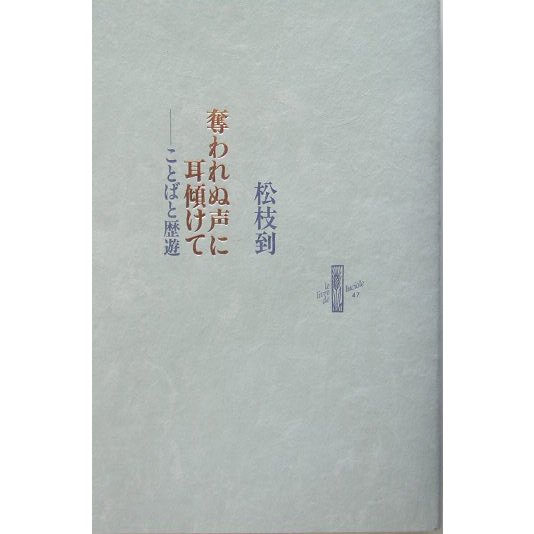 松枝到
奪われぬ声に
耳傾けて
──ことばと歴遊
le
livre
de
luciole
47